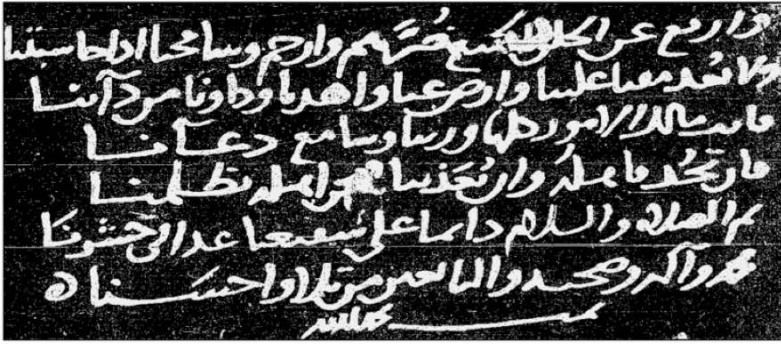 وارفع عن الخلق جميع محنتهم وارحم وسامحنا اذا حاسبتنا
ولا تعد معنا علينا وارض عنا واهدنا وداونا من دآئنا
فانت مالك الامور كلها وربنا وسامع دعآنا
فان تجد فاهله وان تعذبنا بظلمنا
ثم الصلاة والسلام دايما على شفيعنا غدا في حشرنا
محمد وآله وصحبه والتابعين من تلا واحسنا
تمت